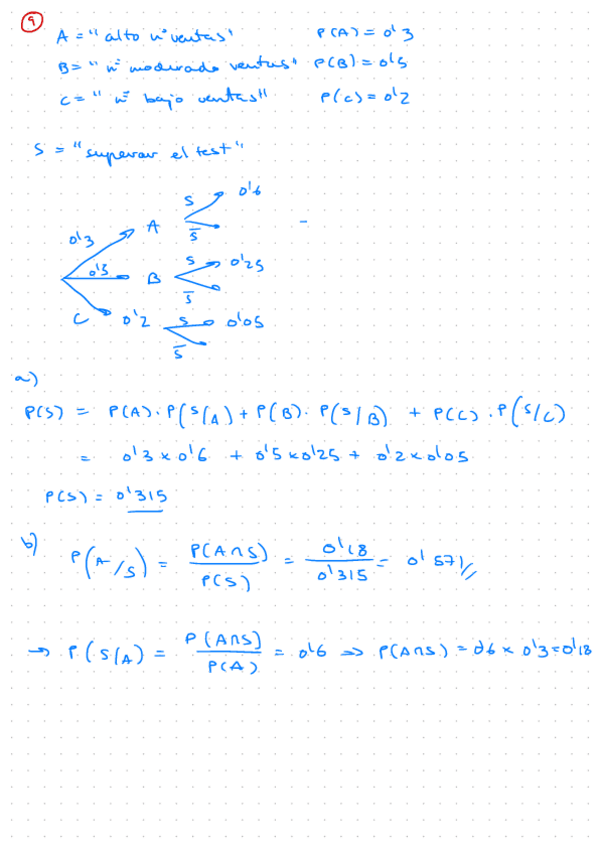 9
A = "alto nº ventas" P(A) = 0'3
B = "nº moderado ventas" P(B) = 0'5
C = "nº bajo ventas" P(C) = 0'2
S = "superar el test"
S 0'6
0'3 A
S̅
0'3 B S 0'25
S̅
C 0'2 S 0'05
S̅
a)
P(S) = P(A) · P(S/A) + P(B) · P(S/B) + P(C) · P(S/C)
= 0'3 x 0'6 + 0'5 x 0'25 + 0'2 x 0'05
P(S) = 0'315
b) P(A/S) = P(A∩S) / P(S) = 0'18 / 0'315 = 0'571
→ P(S/A) = P(A∩S) / P(A) = 0'6 ⇒ P(A∩S) = 0'6 x 0'3 = 0'18